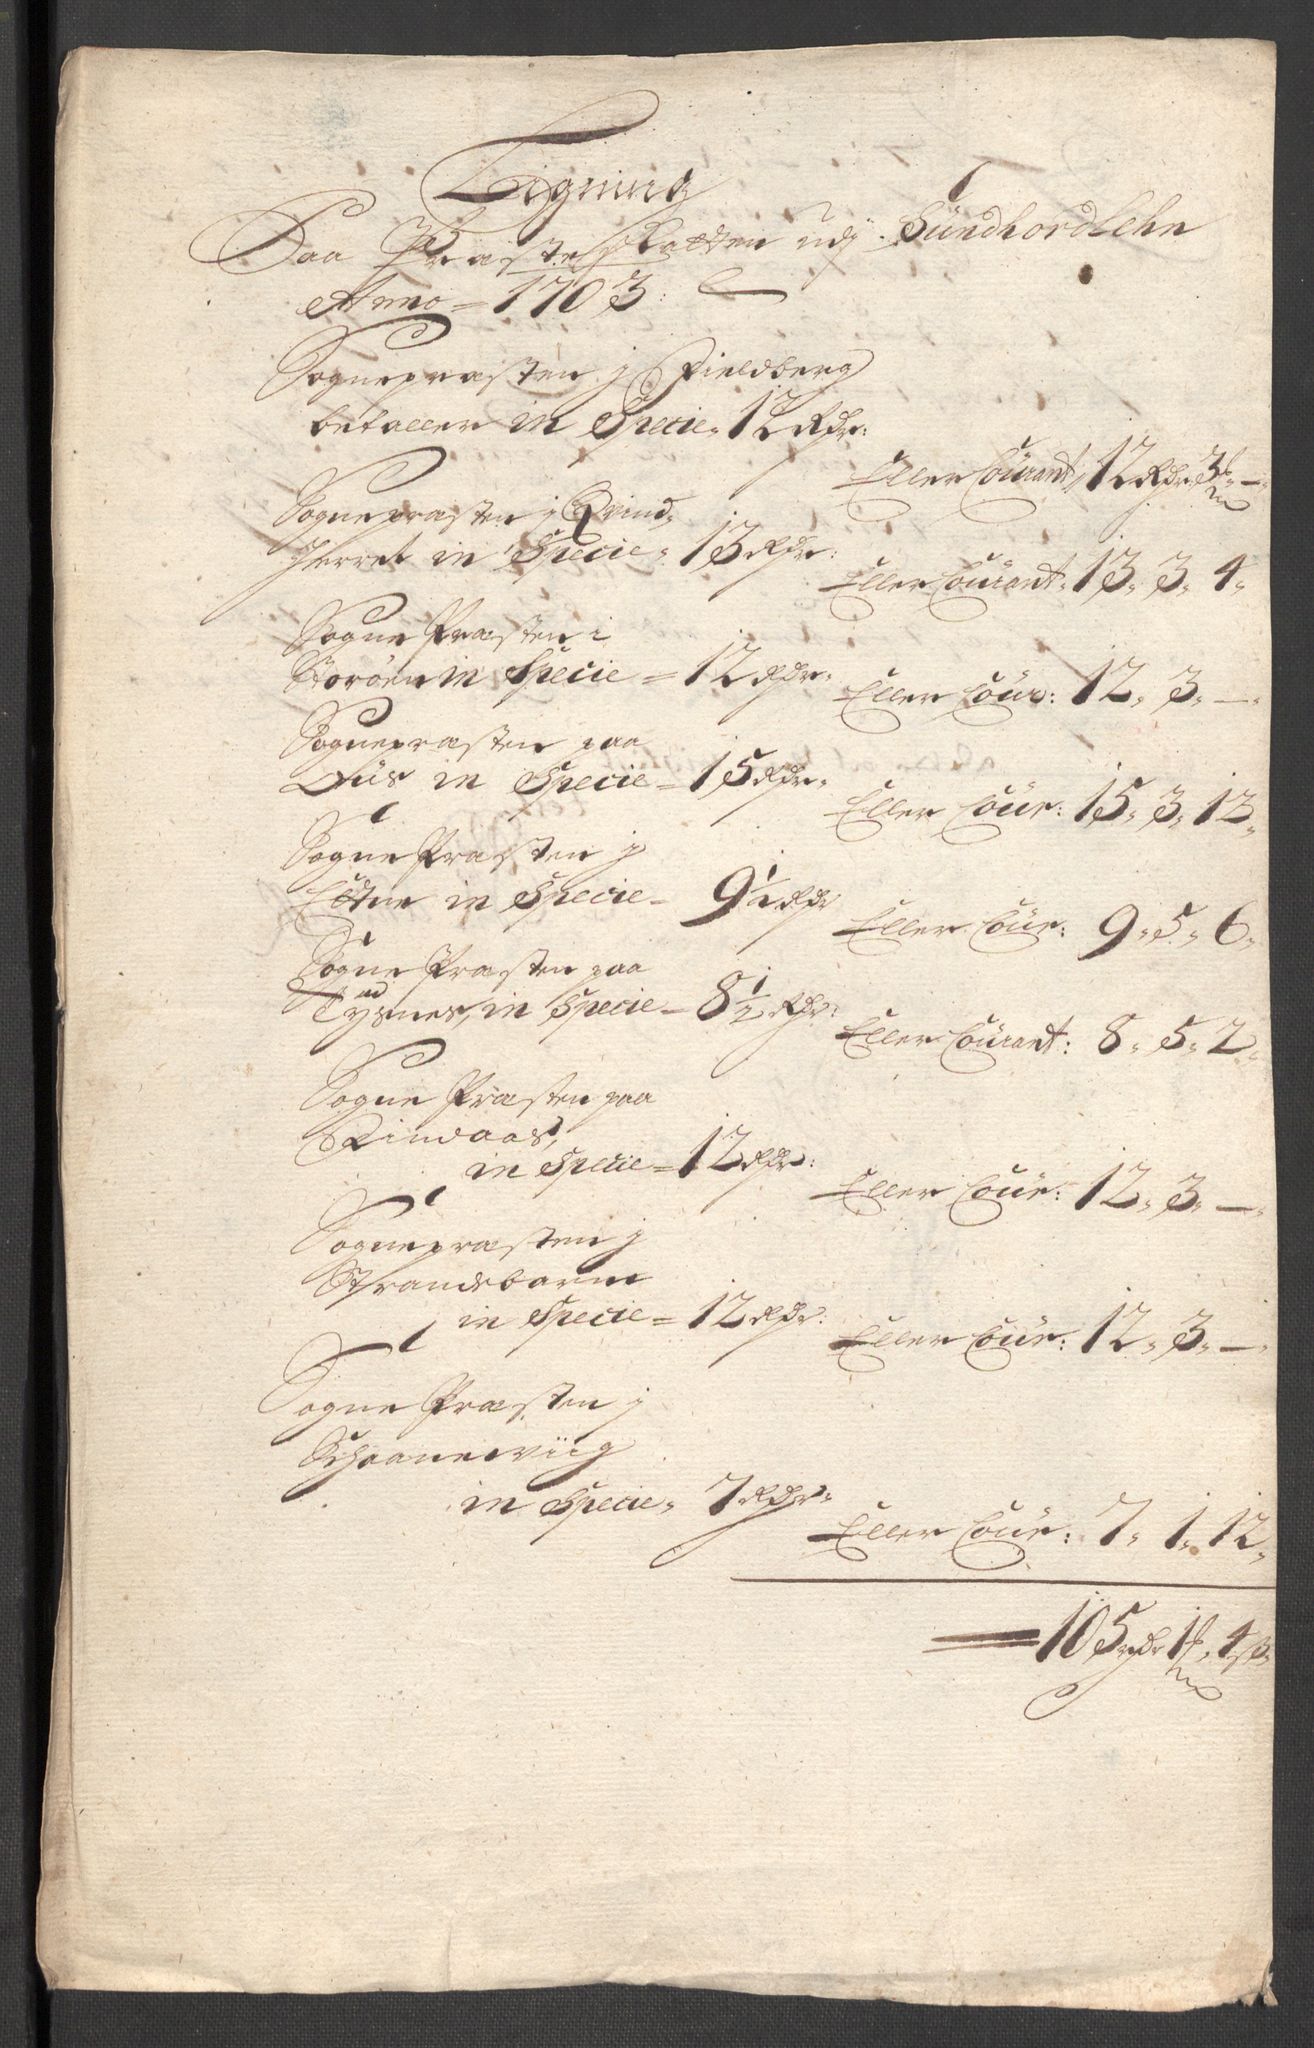 Ligning
Paa Præsteskatten udj Sundhordlehn
Anno 1703:
Sognepræsten j Fieldberg
betaller in Specie 12 Rdr:
Eller Courant, 12 Rdr 3 ¢ —
Sognepræsten j Qvind-
herret in Specie 13 Rdr:
Eller Courant: 13. 3. 4.
Sogne Præsten i
Storöen in Specie = 12 Rdr.
Eller Cour: 12. 3. —
Sognepræsten paa
Fuus in Specie = 15 Rdr.
Eller Cour: 15. 3. 12.
Sogne Præsten j
Edtne in Specie 9½ Rdr
Eller Cour: 9. 5. 6.
Sogne Præsten paa
Tysnes, in Specie 8½ Rdr:
Eller Courant: 8. 5. 2.
Sogne Præsten paa
Findaas,
in Specie = 12 Rdr:
Eller Cour: 12. 3. —
Sognepræsten j
Strandebarm
in Specie = 12 Rdr:
Eller Cour: 12. 3. —
Sogne Præsten j
Schaanewiig
in Specie 7 Rdr
Eller Cour: 7. 1. 12.
105 rdr 1 ¢ 4 ß